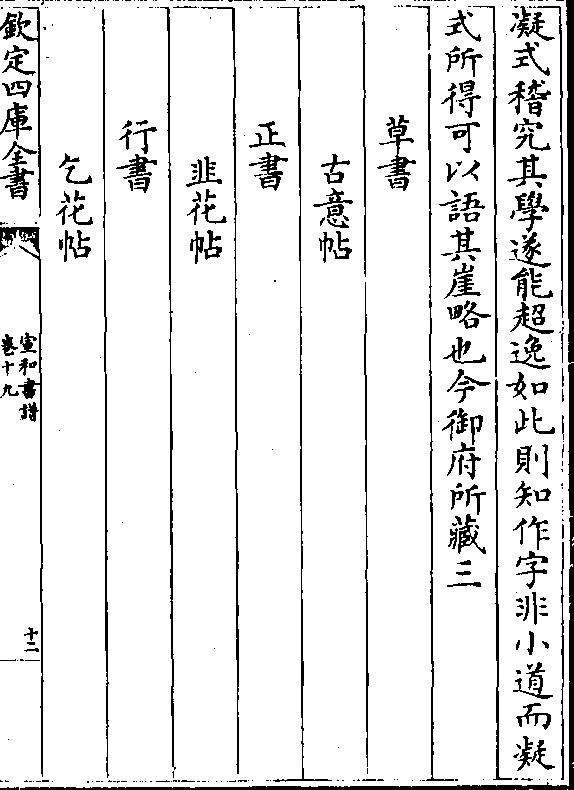 凝式稽究其學遂能超逸如此則知作字非小道而凝
式所得可以語其崖略也今御府所藏三
草書
古意帖
正書
韭花帖
行書
乞花帖
欽定四庫全書
宣和書譜
卷十九
十二